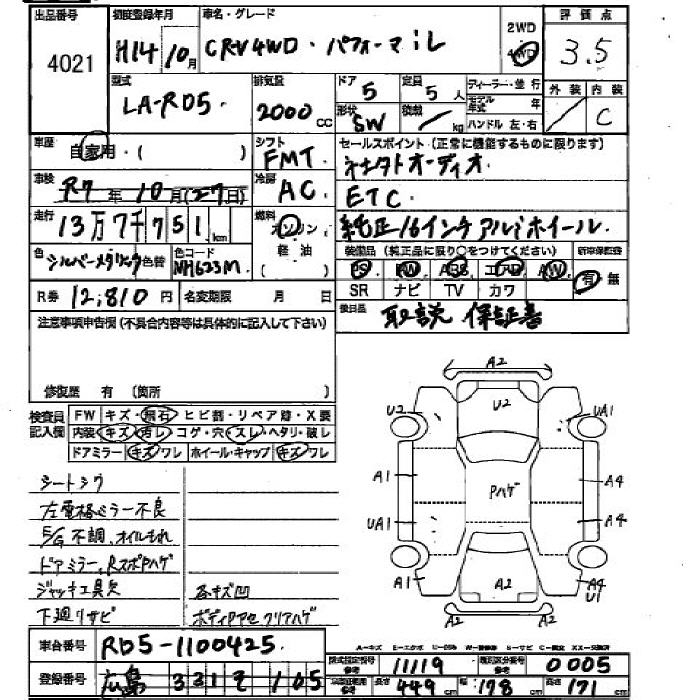 出品番号 4021
初度登録年月 H14 10月
車名・グレード CR-V 4WD・パフォーマ iL
2WD
4WD
評価点 3.5
外装 内装 C
型式 LA-RD5.
排気量 2000 cc
ドア 5 定員 5人
形状 SW 積載 kg
ディーラー・並行
モデル年式 年
ハンドル 左・右
車歴 自家用・( )
シフト FMT.
セールスポイント(正常に機能するものに限ります)
車検 R7年10月(27日)
冷房 AC
オーディオ.
ETC.
走行 13万7千751km
燃料 ガソリン 軽油 ( )
純正16インチアルミホイール.
色 シルバーメタリック 色替 色コード NH623M
装備品 (純正品に限り○をつけてください) 新車保証書
PS PW ABS エアB AW 有・無
SR ナビ TV カワ
R券 12,810円 名変期限 月 日
後日品 取説 保証書
注意事項申告欄(不具合内容等は具体的に記入して下さい)
修復歴 有 (箇所 )
検査員記入欄
FW キズ・飛石・ヒビ割・リペア跡・X要
内装 キズ・汚レ・コゲ・穴・スレ・ヘタリ・破レ
ドアミラー キズ ワレ ホイール・キャップ キズ ワレ
シートシワ
左電格ミラー不良
E/G不調、オイルもれ
ドアミラー、RスポPハゲ
ジャッキ工具欠 各キズ凹
下廻りサビ
A2
U2 U2 UA1
A1 Pハゲ A4
UA1 A4
A1 A2 A4 U1
A2 A2
車台番号 RD5-1100425
登録番号 広島 331 105
型式指定番号 参考 11119 類別区分番号 参考 0005
長さ 449cm 幅 178cm 高さ 171cm